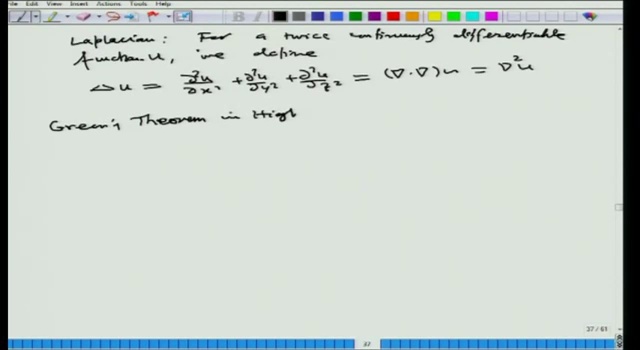 File Edit View Insert Actions Tools Help
Laplacian : For a twice continuously differentiable
function u, we define
Δu = ∂²u/∂x² + ∂²u/∂y² + ∂²u/∂z² = (∇·∇)u = ∇²u
Green's Theorem in High
37 / 61
37